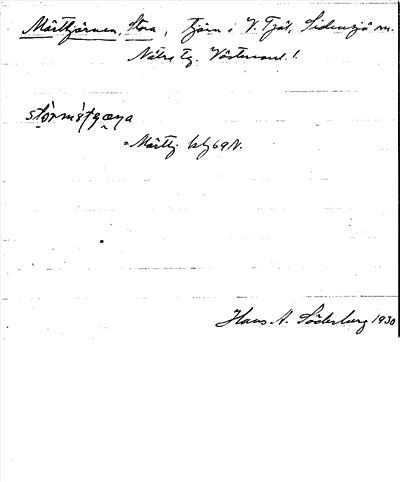 Mårttjärnen, Stora, tjärn i V. Fjäl, Sidensjö sn.
Nätra tg. Västernorrl. l.
= Mårttj. 69N.
Hans A. Söderberg 1930